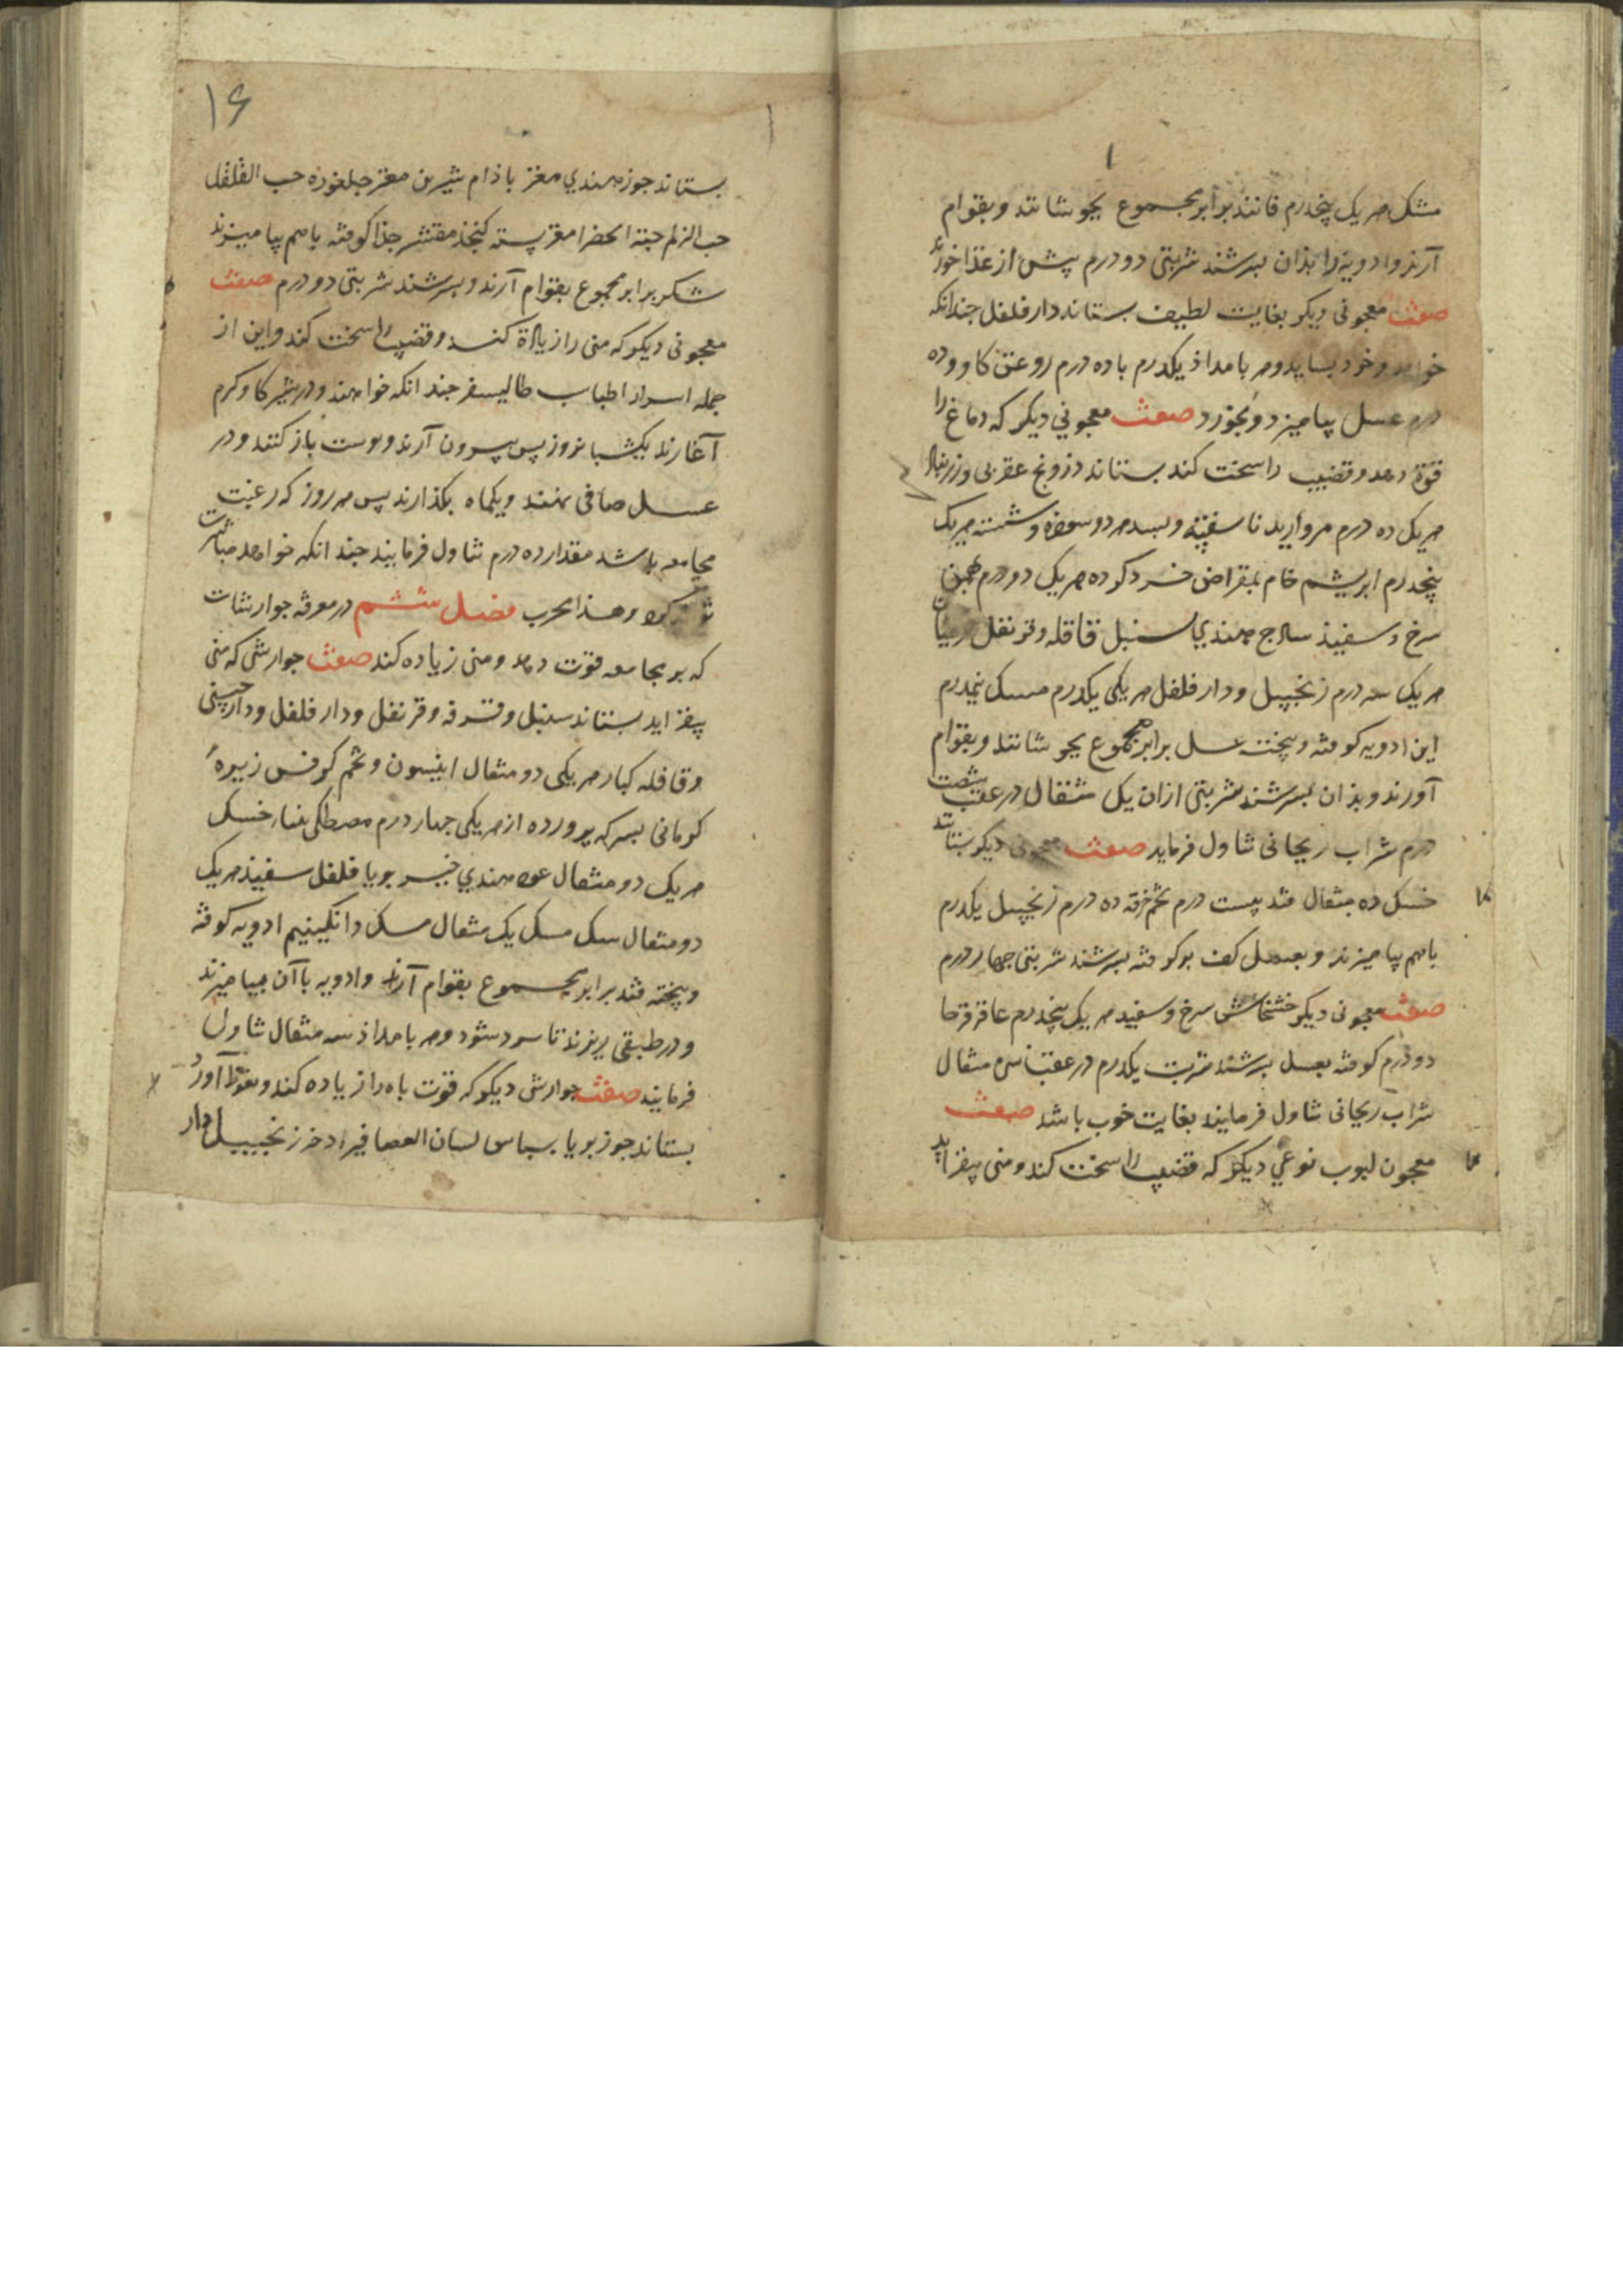 مشک هر یک پنجدرم فانند برابر مجموع بجوشانند و بقوام
آرند و ادویه را بذان بسرشند شربتی دو درم پیش از غذا خورند
صفت معجونی دیکر بغایت لطیف بستاند دار فلفل جندانکه
خواهد و خرد بساید و هر بامداذ یکدرم با ده درم روغن کاو و ده
درم عسل بیامیزد و بخورد صفت معجونی دیکر که دماغ را
قوة دهد و قضیب را سخت کند بستاند درونج عقربی و زرنباد
هر یک ده درم مروارید ناسفته و بسد هر دو سوخته و شسته هر یک
پنجدرم ابریشم خام بمقراض خرد کرده هر یک دو درم بهمن
سرخ و سفیذ ساذج هندی سنبل قاقله و قرنفل
هر یک سه درم زنجبیل و دار فلفل هر یکی یکدرم مسک نیمدرم
این ادویه کوفته و بیخته عسل برابر مجموع بجوشانند و بقوام
آورند و بذان بسرشند شربتی ازان یک مثقال در عقب شصت
درم شراب ریحانی تناول فرماید صفت معجونی دیکر بستانند
خسک ده مثقال قند بیست درم تخم خرفه ده درم زنجبیل یکدرم
باهم بیامیزند و بعسل کف بر کوفته بسرشند شربتی جهار درم
صفت معجونی دیکر خشخاش سرخ و سفید هر یک پنجدرم عاقرقرحا
دو درم کوفته بعسل بسرشند شربت یکدرم در عقب سی مثقال
شراب ریحانی تناول فرمایند بغایت خوب باشد صفت
معجون لبوب نوعی دیکر که قضیب را سخت کند و منی بیفزاید
۱۶
بستاند جوز هندی مغز باذام شیرین مغز جلغوزه حب الفلفل
حب الزلم حبة الخضرا مغز پسته کنجذ مقشر جذا کوفته باهم بیامیزند
شکر برابر مجموع بقوام آرند و بسرشند شربتی دو درم صفت
معجونی دیکر که منی را زیادة کند و قضیب را سخت کند و این از
جمله اسرار اطباست طالیسفر جند انکه خواهند و در شیر کاو کرم
آغارند یکشبانروز پس بیرون آرند و پوست باز کنند و در
عسل صافی نهند و یکماه بکذارند پس هر روز که رغبت
مجامعه باشد مقدار ده درم تناول فرمایند جند انکه خواهد مباشرت
تواند کرد و هذا مجرب فصل ششم در معرفه جوارشات
که بر مجامعه قوت دهد و منی زیاده کند صفت جوارشی که منی
بیفزاید بستاند سنبل و قرفه و قرنفل و دار فلفل و دارچینی
و قاقله کبار هر یکی دو مثقال انیسون و تخم کرفس زیرهٔ
کرمانی بسرکه پرورده از هر یکی جهار درم مصطکی نعناع خسک
هر یک دو مثقال عود هندی خیر بویا فلفل سفیذ هر یک
دو مثقال سک مسک یک مثقال مسک دانکینیم ادویه کوفته
و بیخته قند برابر مجموع بقوام آرند و ادویه با آن بیامیزند
و در طبقی ریزند تا سرد شود و هر بامداذ سه مثقال تناول
فرمایند صفت جوارش دیکر که قوت باه را زیاده کند و نعوظ آورد
بستاند جوز بویا بسباس لسان العصافیر اذخر زنجبیل دار